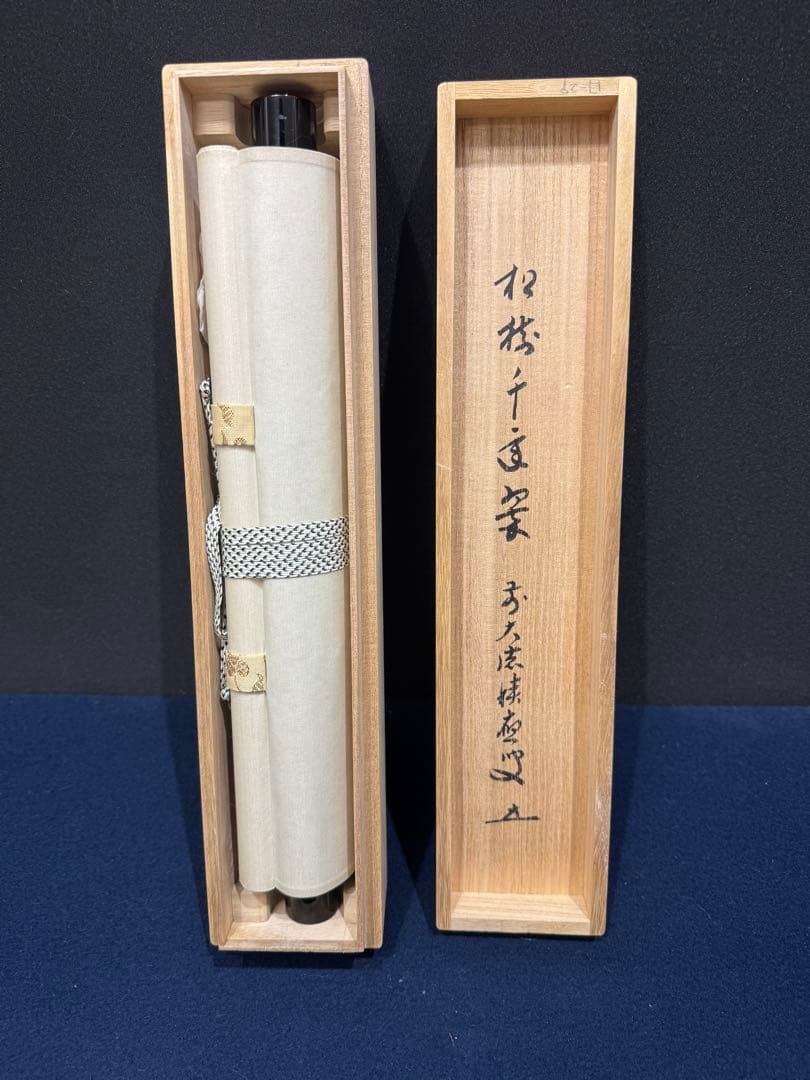 松樹千年翠 前大徳積應叟